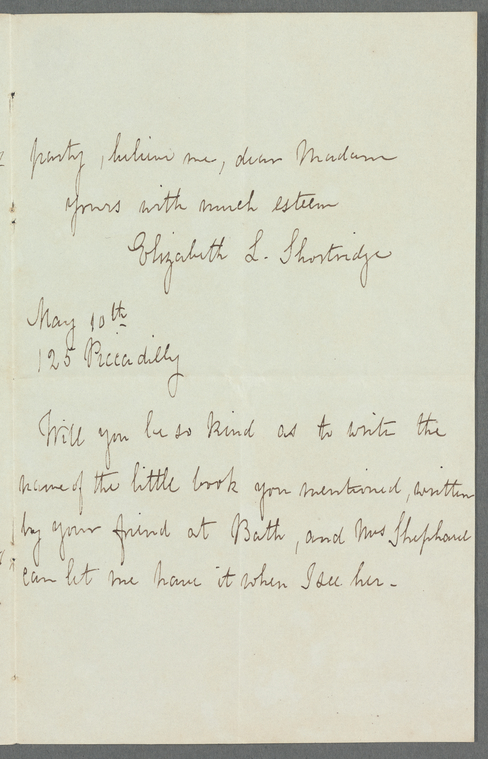 party, believe me, dear Madam
yours with much esteem
Elizabeth L. Shortridge
May 10th
125 Piccadilly
Will you be so kind as to write the
name of the little book you mentioned, written
by your friend at Bath, and Mrs Shephard
can let me have it when I see her -